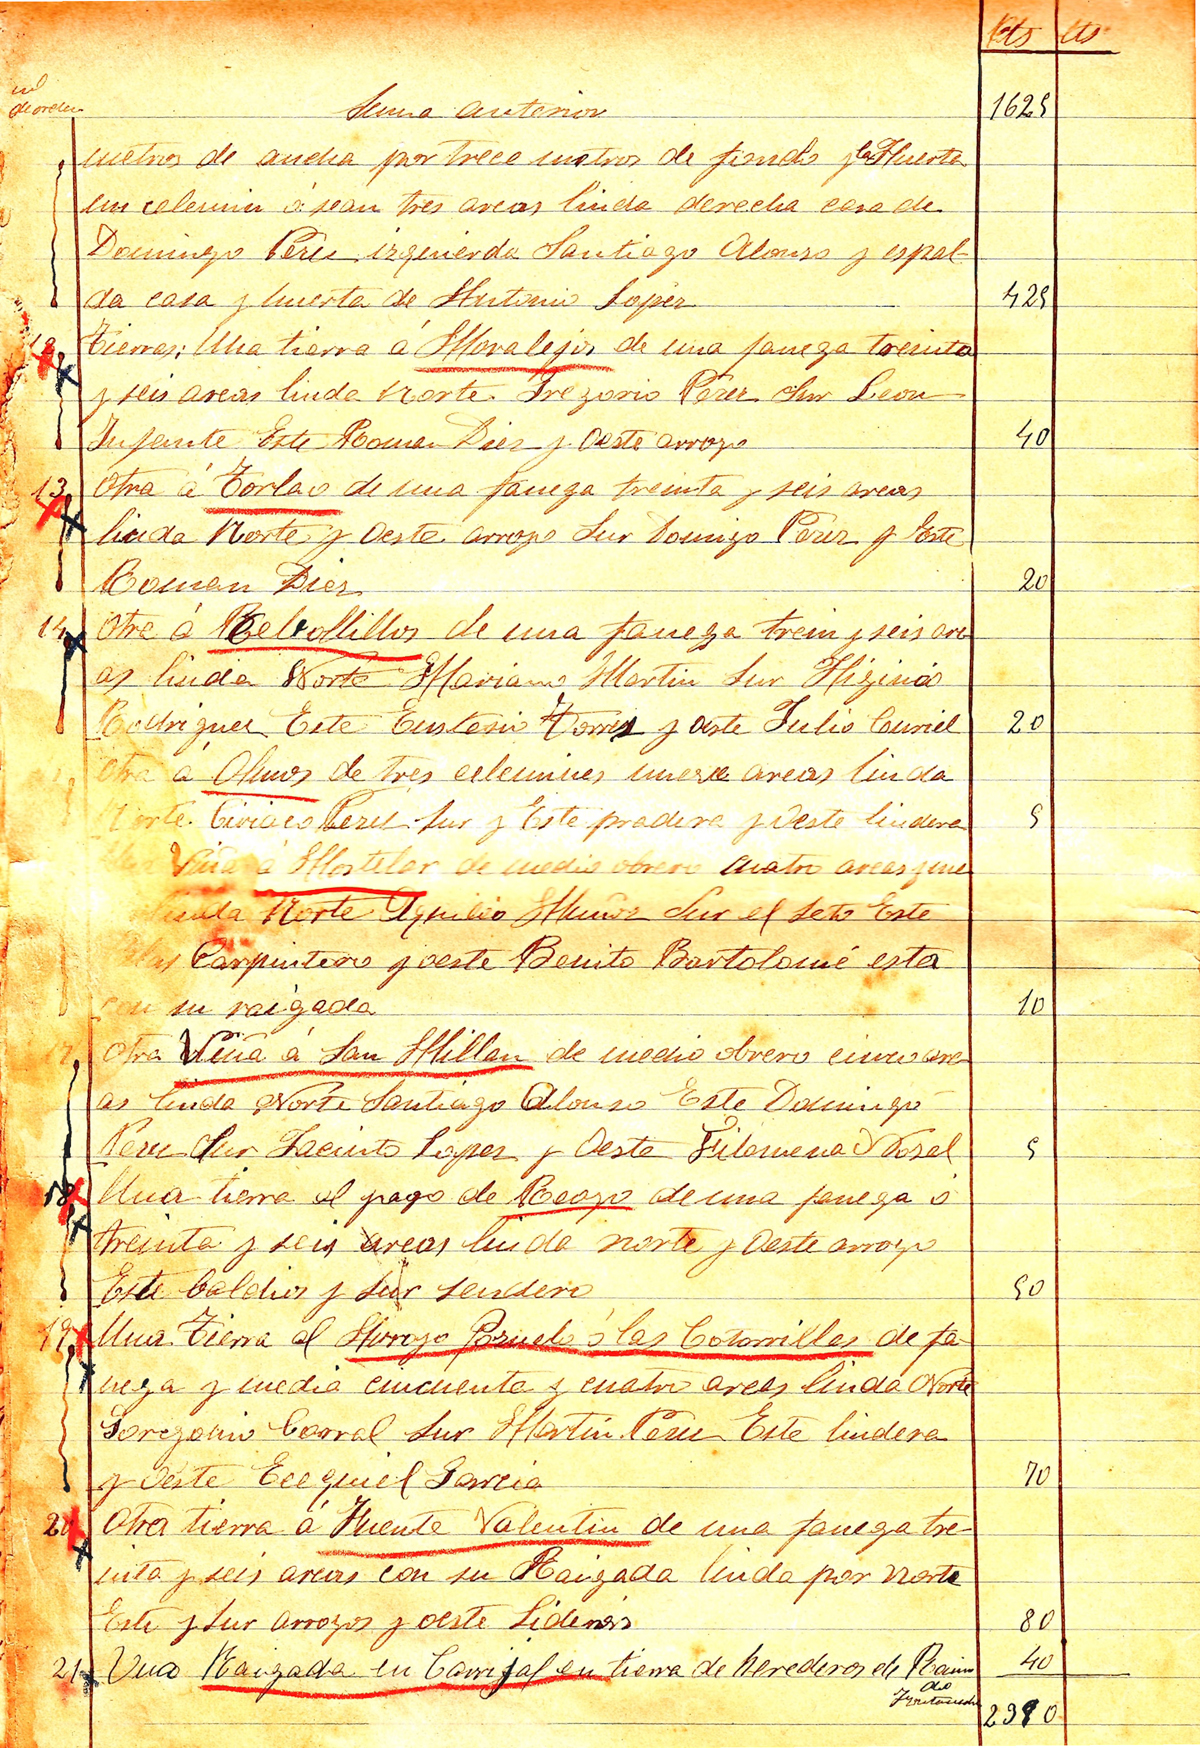 Pts cts
nº de orden
Suma anterior 1625
metros de ancha por trece metros de fondo y la Huerta
un celemin ó sean tres areas linda derecha casa de
Domingo Perez izquierda Santiago Alonso y espal-
da casa y huerta de Antonio Lopez 425
12 Tierras: Una tierra á Moralejos de una fanega treinta
y seis areas linda Norte Gregorio Pérez Sur Leon
Infante Este Roman Diez y Oeste arroyo 40
13 Otra á Torlao de una fanega treinta y seis areas
linda Norte y Oeste arroyo Sur Domingo Pérez y Este
Roman Diez 20
14 Otra á Rebollillos de una fanega trein y seis are
as linda Norte Mariano Martin Sur Higinio
Rodriguez Este Eusterio Torres y oste Julio Curiel 20
Otra á Olmos de tres celemines nueve areas linda
Norte Ciriaco Perez Sur y Este pradera y Oeste lindera 5
Viña á Mostelar de medio obrero cuatro areas y me
linda Norte Aquilio Muñoz Sur el seto Este
Blas Carpintero y oeste Benito Bartolomé esta
con su raigada 10
17 Otra Viña á San Millan de medio obrero cinco are
as linda Norte Santiago Alonso Este Domingo
Perez Sur Jacinto Lopez y Oeste Filomena Nozal 5
18 Una tierra al pago de Reoyo de una fanega ó
treinta y seis areas linda norte y Oeste arroyo
Este baldios y sur sendero 50
19 Una Tierra al Arroyo Pozuelo ó las Cotorrillas de fa-
nega y media cincuenta y cuatro areas linda Norte
Goregorio Corral Sur Martin Perez Este lindera
y Oeste Ecequiel Garcia 70
20 Otra tierra á Fuente Valentin de una fanega tre-
inta y seis areas con su Raigada linda por Norte
Este y Sur arroyos y oeste Lideras 80
21 Una Raigada en Carrijal en tierra de herederos de Raim 40
do
2390